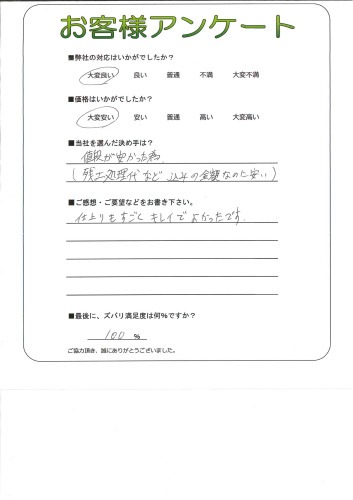 お客様アンケート
■弊社の対応はいかがでしたか?
大変良い 良い 普通 不満 大変不満
■価格はいかがでしたか?
大変安い 安い 普通 高い 大変高い
■当社を選んだ決め手は?
値段が安かった為
(残土処理代など 込みの金額なのに安い)
■ご感想・ご要望などをお書き下さい。
仕上りもすごく キレイで よかったです。
■最後に、ズバリ満足度は何%ですか?
100 %
ご協力頂き、誠にありがとうございました。